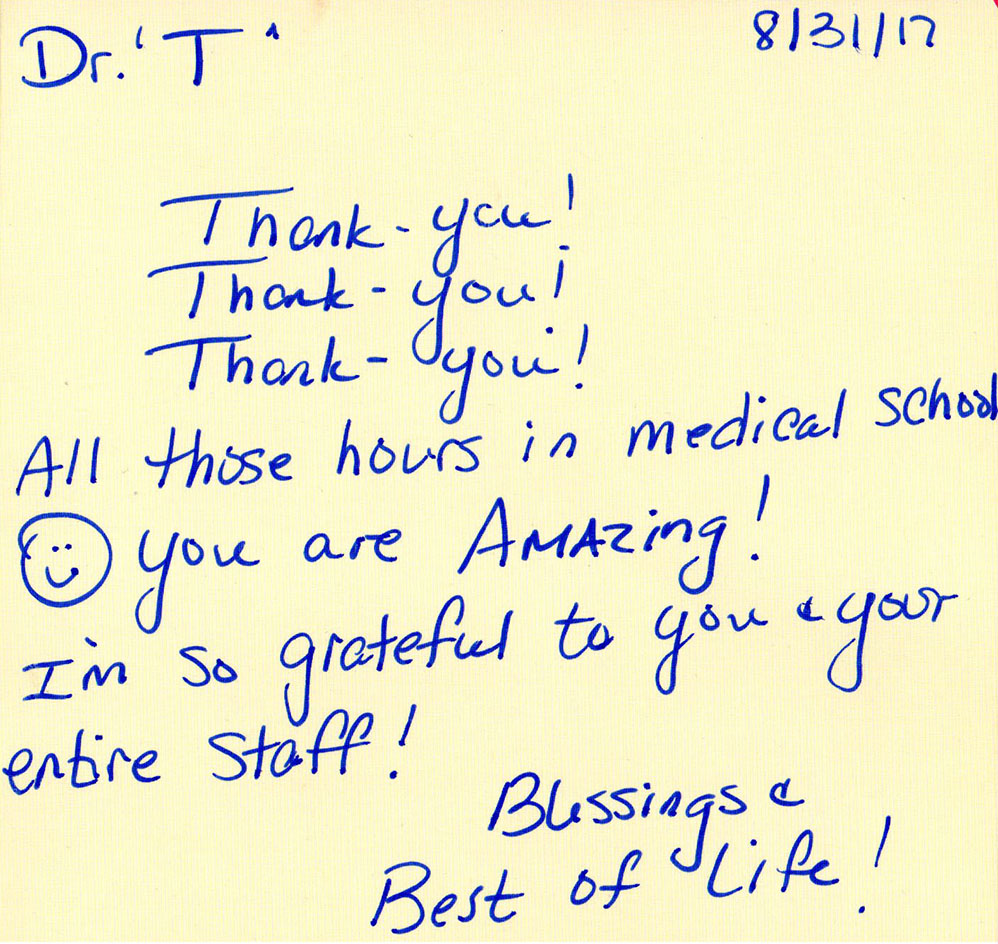 Dr. 'T' 8/31/17
Thank-you!
Thank-you!
Thank-you!
All those hours in medical school
you are AMAzing!
I'm so grateful to you & your
entire staff!
Blessings &
Best of Life!